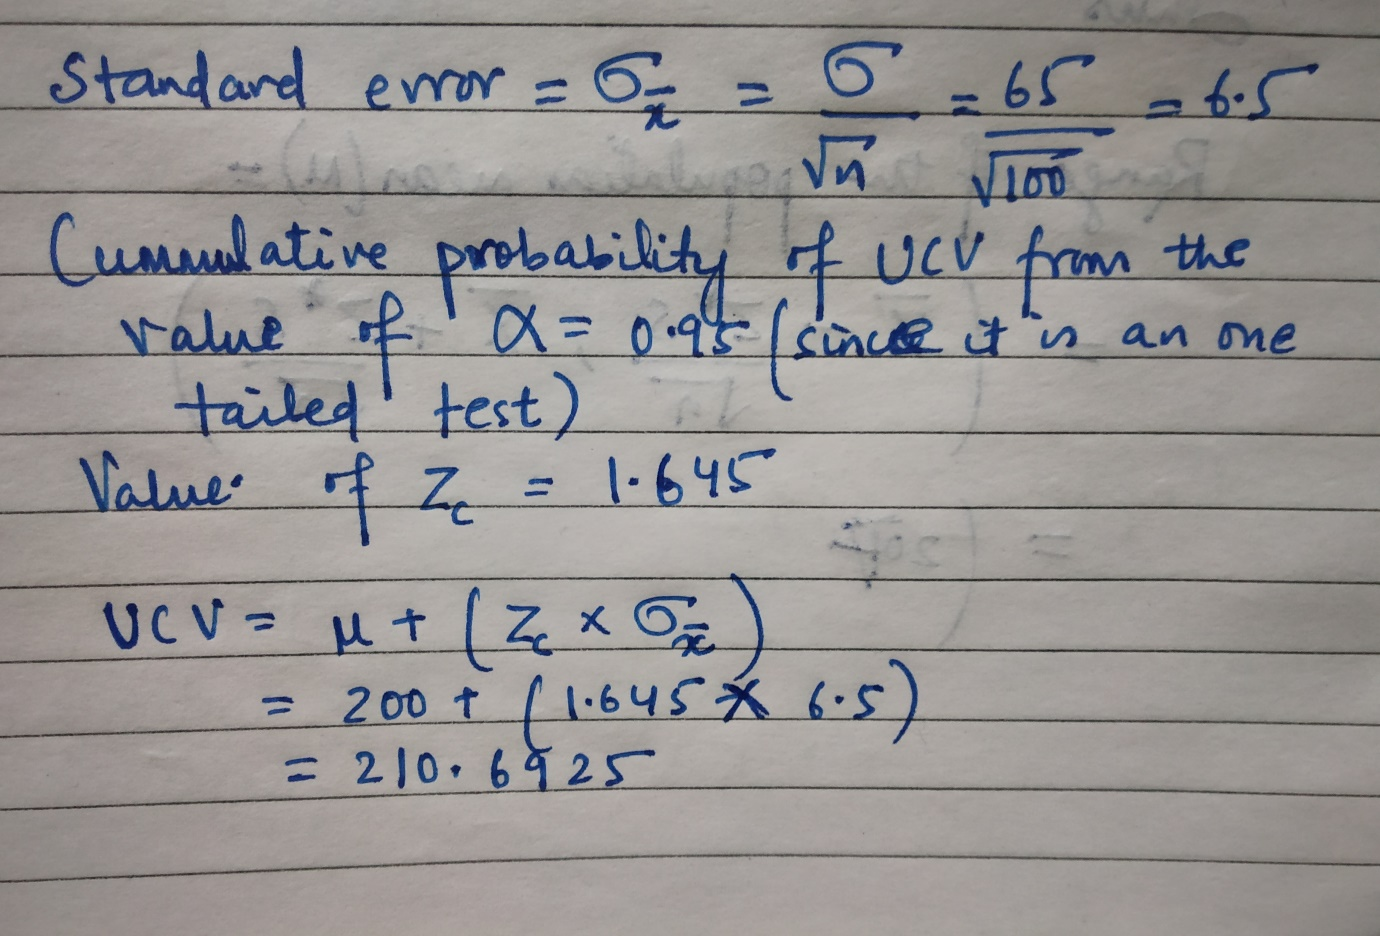 Standard error = σx̄ = σ/√n = 65/√100 = 6.5
Cummulative probability of UCV from the
value of α = 0.95 (since it is an one
tailed test)
Value of Zc = 1.645
UCV = μ + (Zc × σx̄)
= 200 + (1.645 × 6.5)
= 210.6925